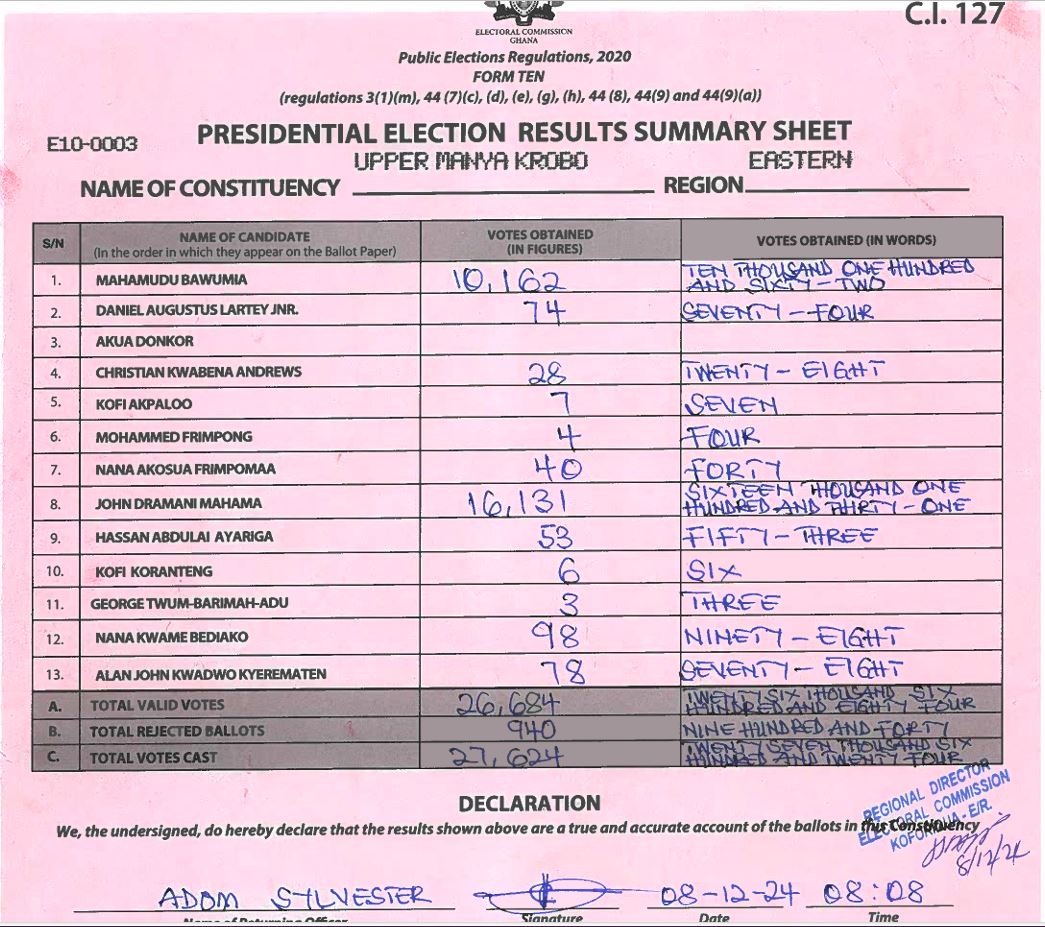 C.I. 127
ELECTORAL COMMISSION
GHANA
Public Elections Regulations, 2020
FORM TEN
(regulations 3(1)(m), 44 (7)(c), (d), (e), (g), (h), 44 (8), 44(9) and 44(9)(a))
E10-0003
PRESIDENTIAL ELECTION RESULTS SUMMARY SHEET
UPPER MANYA KROBO EASTERN
NAME OF CONSTITUENCY REGION
S/N NAME OF CANDIDATE (In the order in which they appear on the Ballot Paper) VOTES OBTAINED (IN FIGURES) VOTES OBTAINED (IN WORDS)
1. MAHAMUDU BAWUMIA 10,162 TEN THOUSAND ONE HUNDRED AND SIXTY-TWO
2. DANIEL AUGUSTUS LARTEY JNR. 74 SEVENTY-FOUR
3. AKUA DONKOR
4. CHRISTIAN KWABENA ANDREWS 28 TWENTY-EIGHT
5. KOFI AKPALOO 7 SEVEN
6. MOHAMMED FRIMPONG 4 FOUR
7. NANA AKOSUA FRIMPOMAA 40 FORTY
8. JOHN DRAMANI MAHAMA 16,131 SIXTEEN THOUSAND ONE HUNDRED AND THIRTY-ONE
9. HASSAN ABDULAI AYARIGA 53 FIFTY-THREE
10. KOFI KORANTENG 6 SIX
11. GEORGE TWUM-BARIMAH-ADU 3 THREE
12. NANA KWAME BEDIAKO 98 NINETY-EIGHT
13. ALAN JOHN KWADWO KYEREMATEN 78 SEVENTY-EIGHT
A. TOTAL VALID VOTES 26,684 TWENTY SIX THOUSAND SIX HUNDRED AND EIGHTY FOUR
B. TOTAL REJECTED BALLOTS 940 NINE HUNDRED AND FORTY
C. TOTAL VOTES CAST 27,624 TWENTY SEVEN THOUSAND SIX HUNDRED AND TWENTY FOUR
DECLARATION
We, the undersigned, do hereby declare that the results shown above are a true and accurate account of the ballots in this Constituency
REGIONAL DIRECTOR
ELECTORAL COMMISSION
KOFORIDUA - E/R.
ADOM SYLVESTER 08-12-24 08:08
Name of Returning Officer Signature Date Time